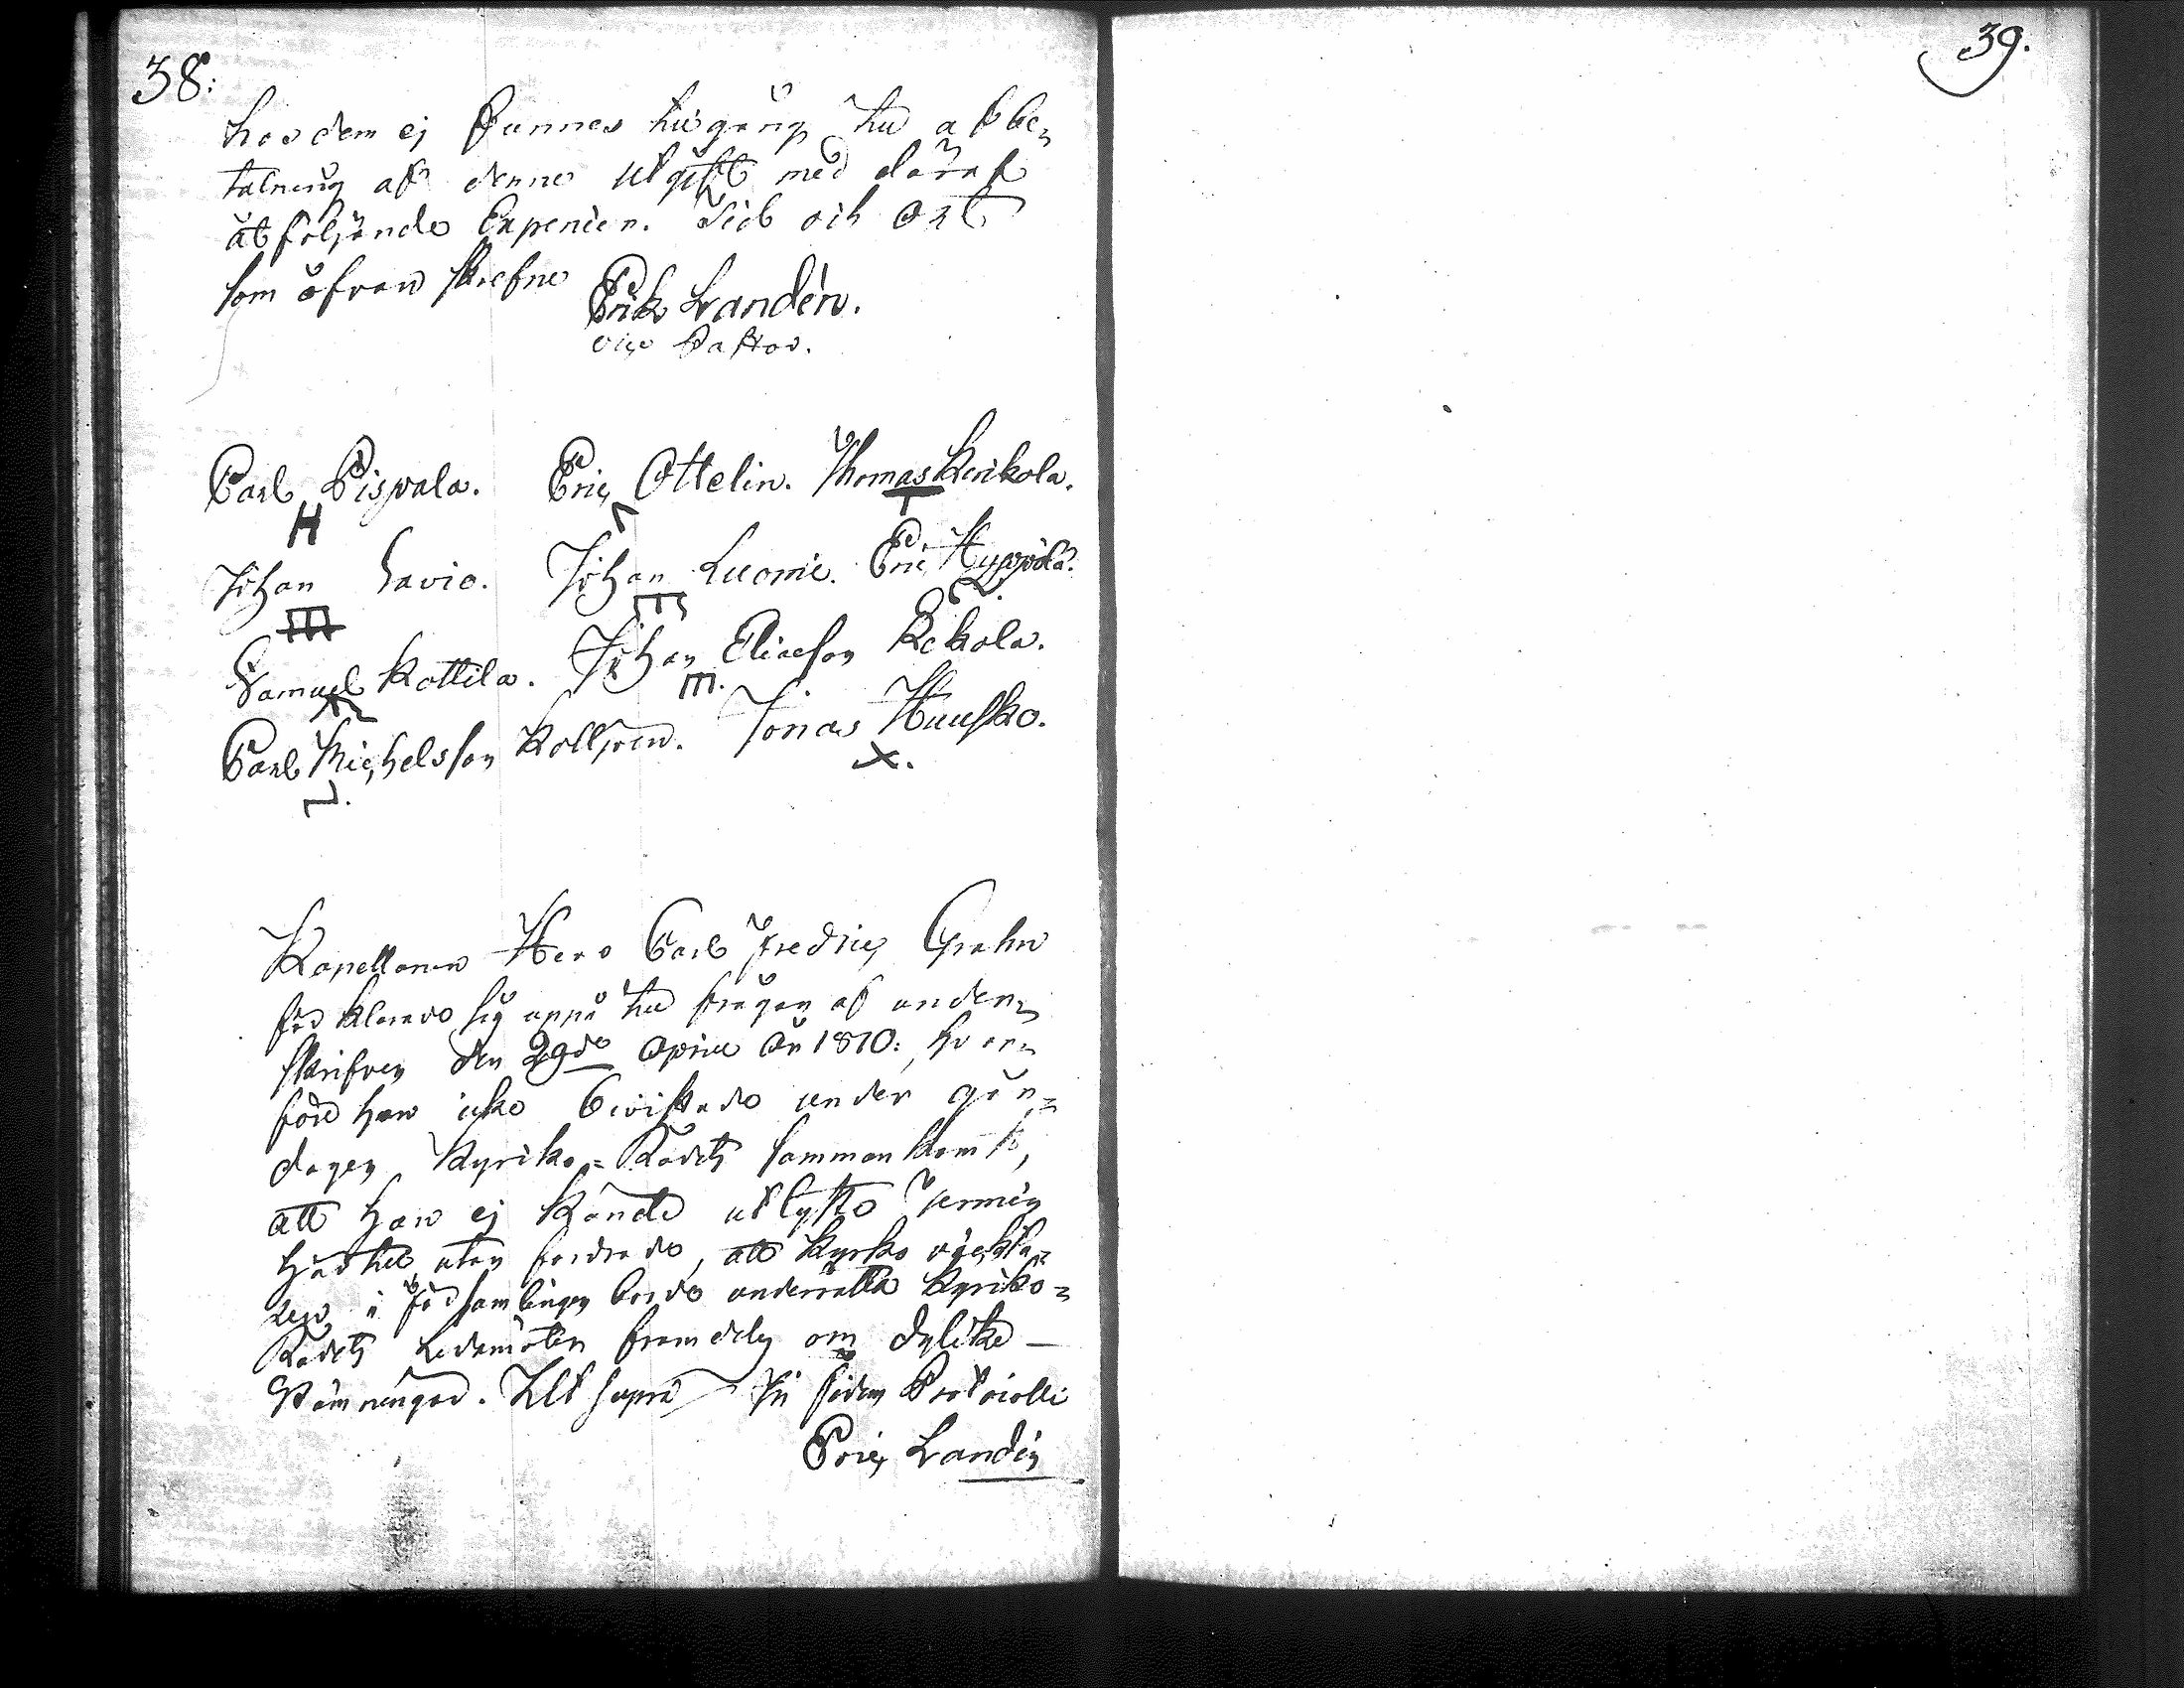 38:
hos dem ej funnes tilgång til afbe=
talning af denne utgift med däraf
åtföljande Expensier. Tid och Ort
som ofvan skrefne
Erik Landén.
vice Pastor.
Carl Pispala. Eric Ottelin. Thomas Kerikola.
Johan Savio. Johan Luomi. Eric Hyppölä.
Samuel Kottila. Johan Eliasson Rekola.
Carl Michelsson Kolljoen. Jonas Huusko.
Kapellanen Herr Carl Fredric Grahn
förklarade sig uppå til frågan af under=
skrifven den 29de April År 1810:, hvar=
före han icke bivistade under går=
dagen Kyrko=Rådets sammankomst,
att han ej kände utlyste
härtil, utan fordrade, att Kyrko väckta=
ren i Församlingen borde underrätta Kyrko=
Rådets Ledamöter framdeles om dylika
Stämningar. Ut supra In fidem Protocolli
Eric Landén
39.